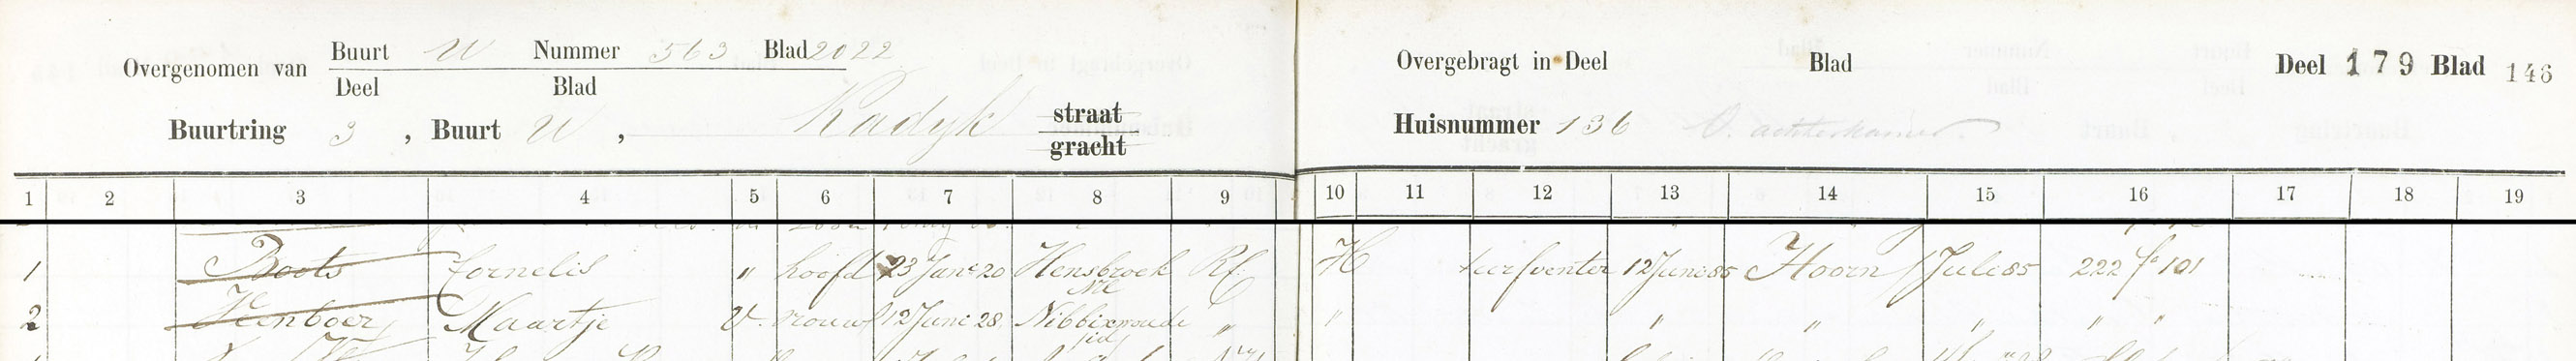 Overgenomen van Buurt U Nummer 563 Blad 2022
Deel Blad
Buurtring 3, Buurt U, Kadyk straat gracht
Overgebragt in Deel Blad Deel 179 Blad 146
Huisnummer 136 O. achterkamer.
1 2 3 4 5 6 7 8 9 10 11 12 13 14 15 16 17 18 19
1 Boots Cornelis " hoofd 23 Juni 20 Hensbroek Rf. H 12 Juni 85 Hoorn 1 Juli 85 222 fo 101
2 Veenboer Maartje V. vrouw 12 Juni 28 Nibbixwoude " " " " " " "